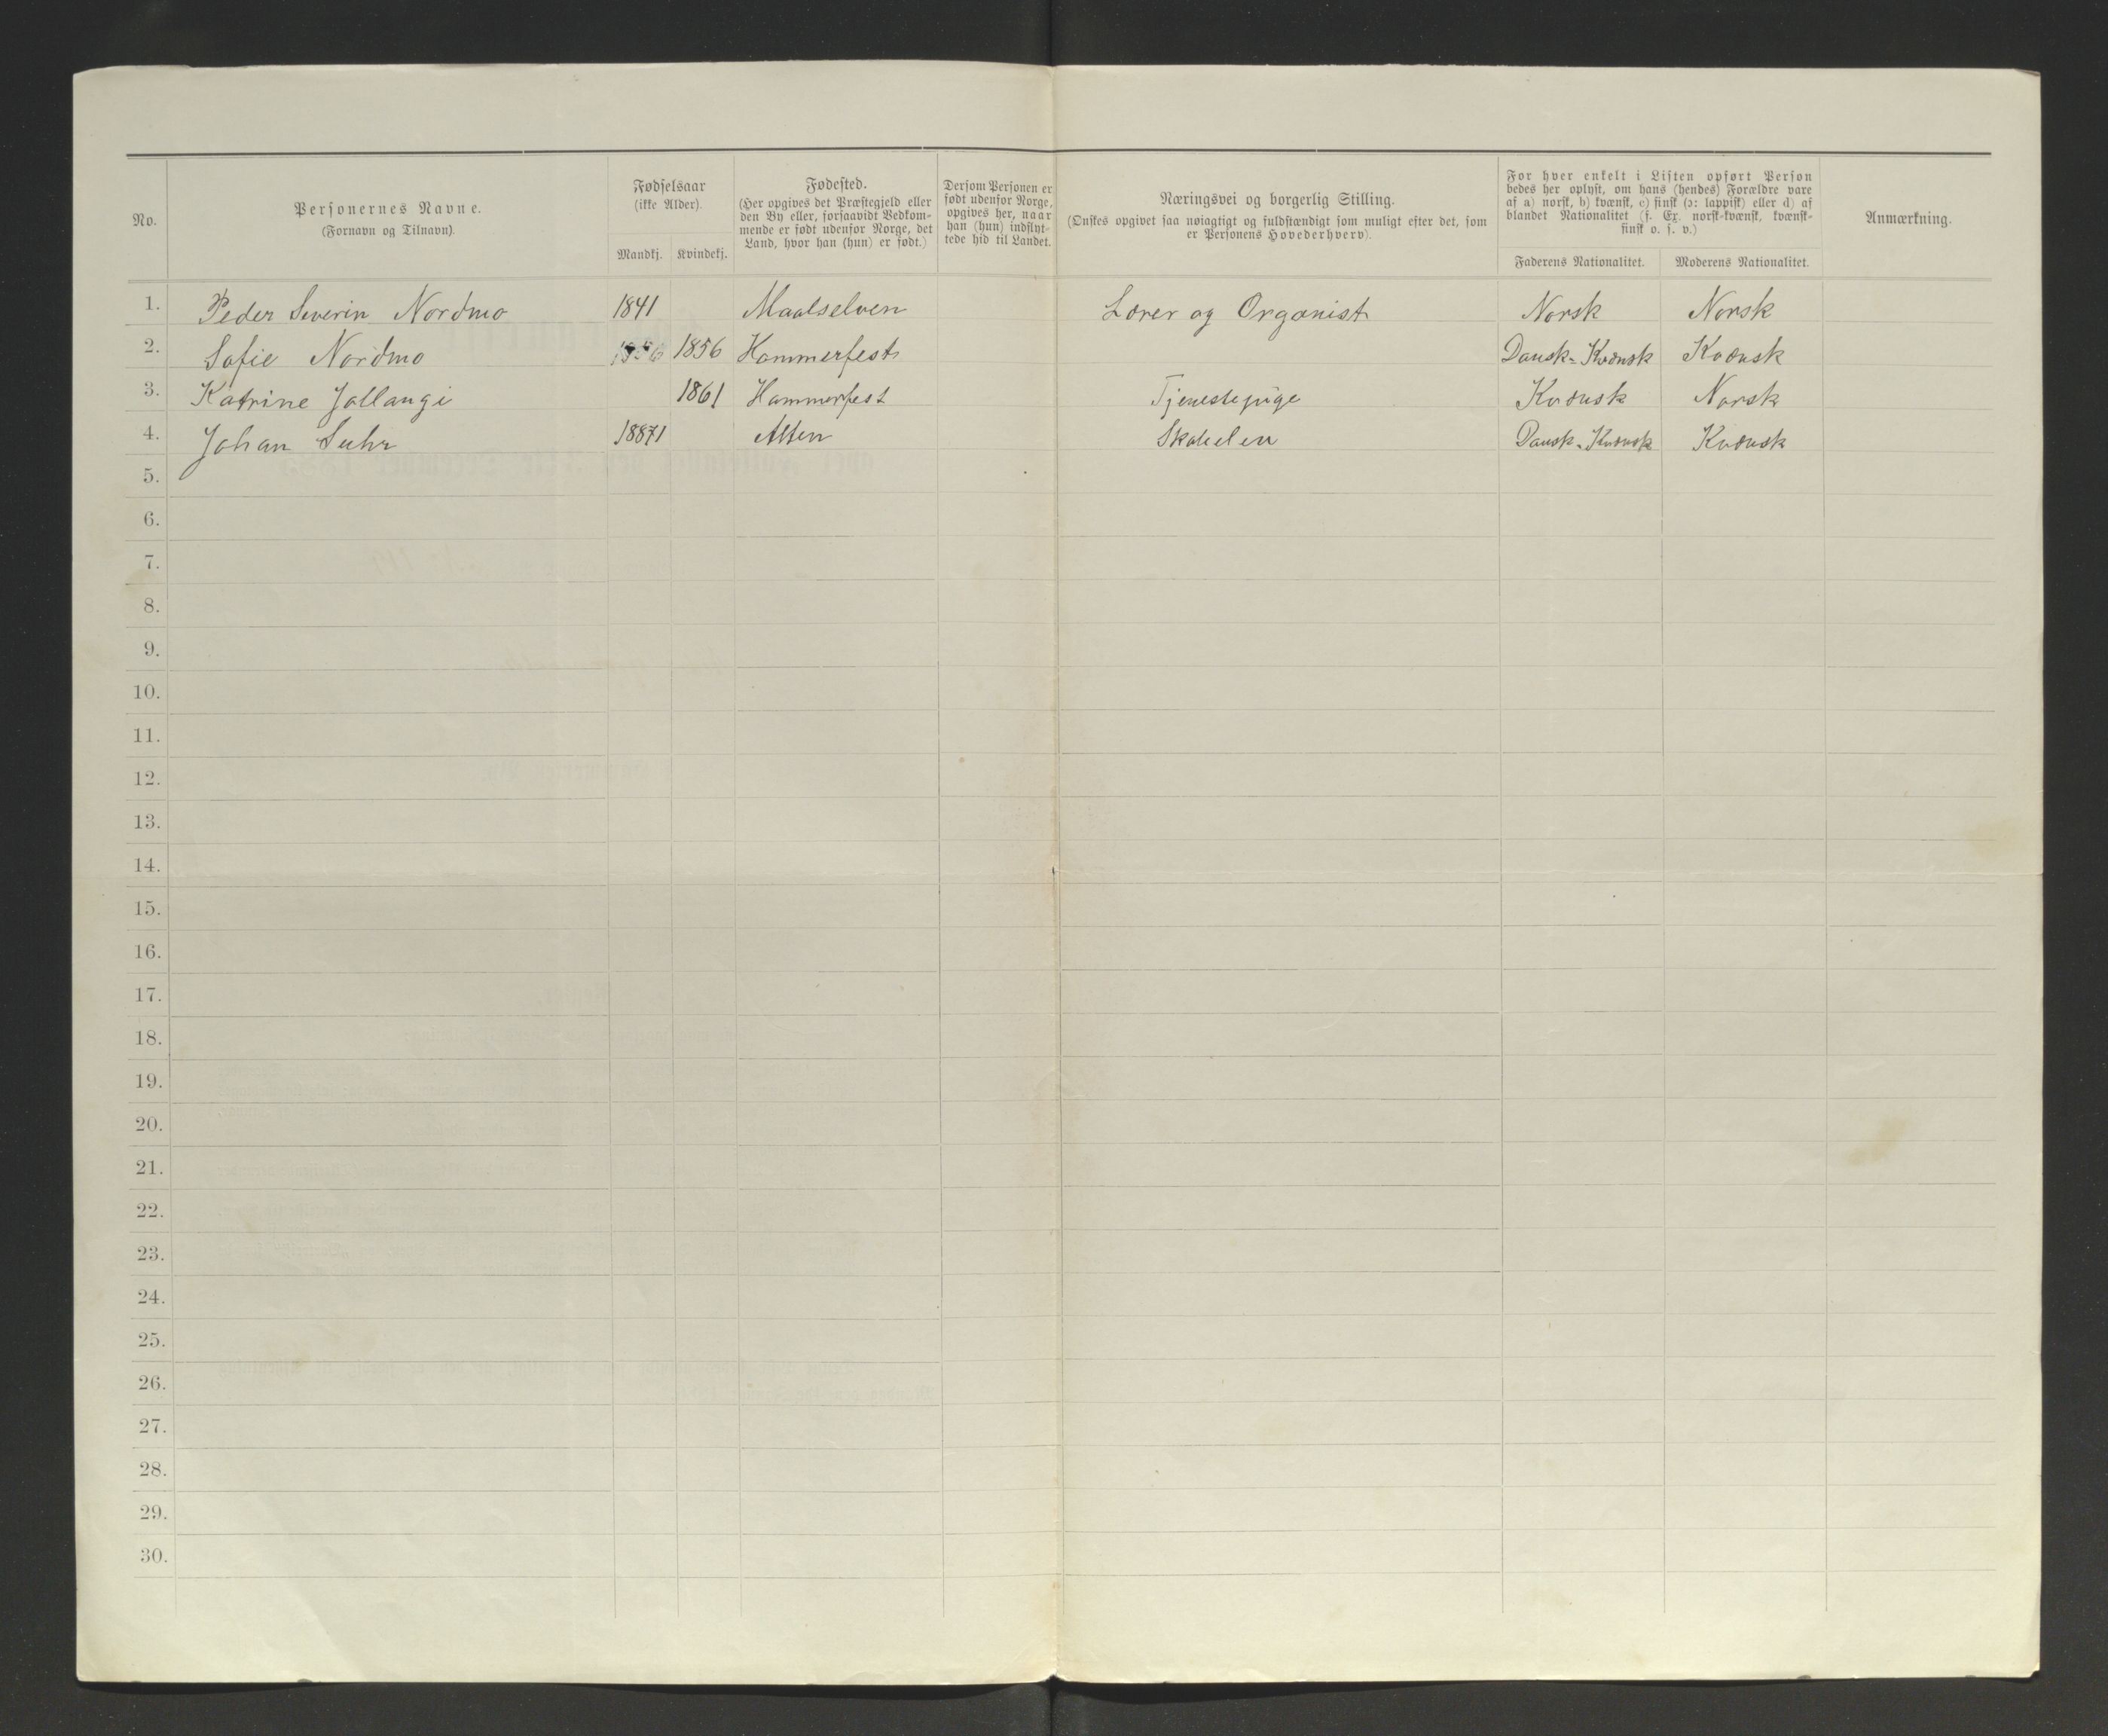 No.
Personernes Navne.
(Fornavn og Tilnavn).
Fødselsaar
(ikke Alder).
Mandkj. Kvindekj.
Fødested.
(Her opgives det Præstegjeld eller
den By eller, forsaavidt Vedkom-
mende er født udenfor Norge, det
Land, hvor han (hun) er født.)
Dersom Personen er
født udenfor Norge,
opgives her, naar
han (hun) indflyt-
tede hid til Landet.
Næringsvei og borgerlig Stilling.
(Ønskes opgivet saa nøiagtigt og fuldstændigt som muligt efter det, som
er Personens Hovederhverv).
For hver enkelt i Listen opført Person
bedes her oplyst, om hans (hendes) Forældre vare
af a) norsk, b) kvænsk, c) finsk (ɔ: lappisk) eller d) af
blandet Nationalitet (f. Ex. norsk-kvænsk, kvænsk-
finsk o. s. v.)
Faderens Nationalitet. Moderens Nationalitet.
Anmærkning.
1. Peder Severin Nordmo 1841 Maalselven Lærer og Organist Norsk Norsk
2. Sofie Nordmo 1856 1856 Hammerfest Dansk-Kvænsk Kvænsk
3. Katrine Jallangi 1861 Hammerfest Tjenestepige Kvænsk Norsk
4. Johan Suhr Alten Dansk-Kvænsk Kvænsk
5.
6.
7.
8.
9.
10.
11.
12.
13.
14.
15.
16.
17.
18.
19.
20.
21.
22.
23.
24.
25.
26.
27.
28.
29.
30.